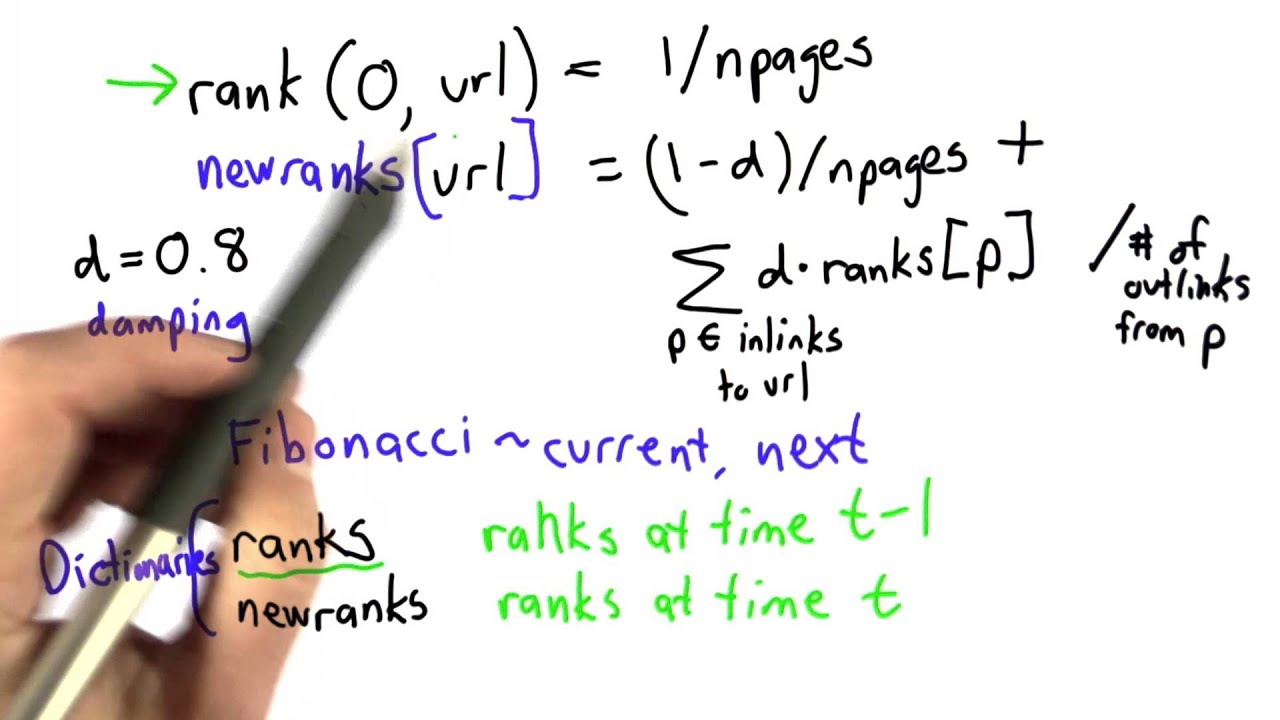 → rank (0, url) = 1/npages
newranks[url] = (1-d)/npages +
d = 0.8
damping
∑ d·ranks[p] / # of
outlinks
from p
p ∈ inlinks
to url
Fibonacci ~ current, next
Dictionaries { ranks ranks at time t-1
newranks ranks at time t